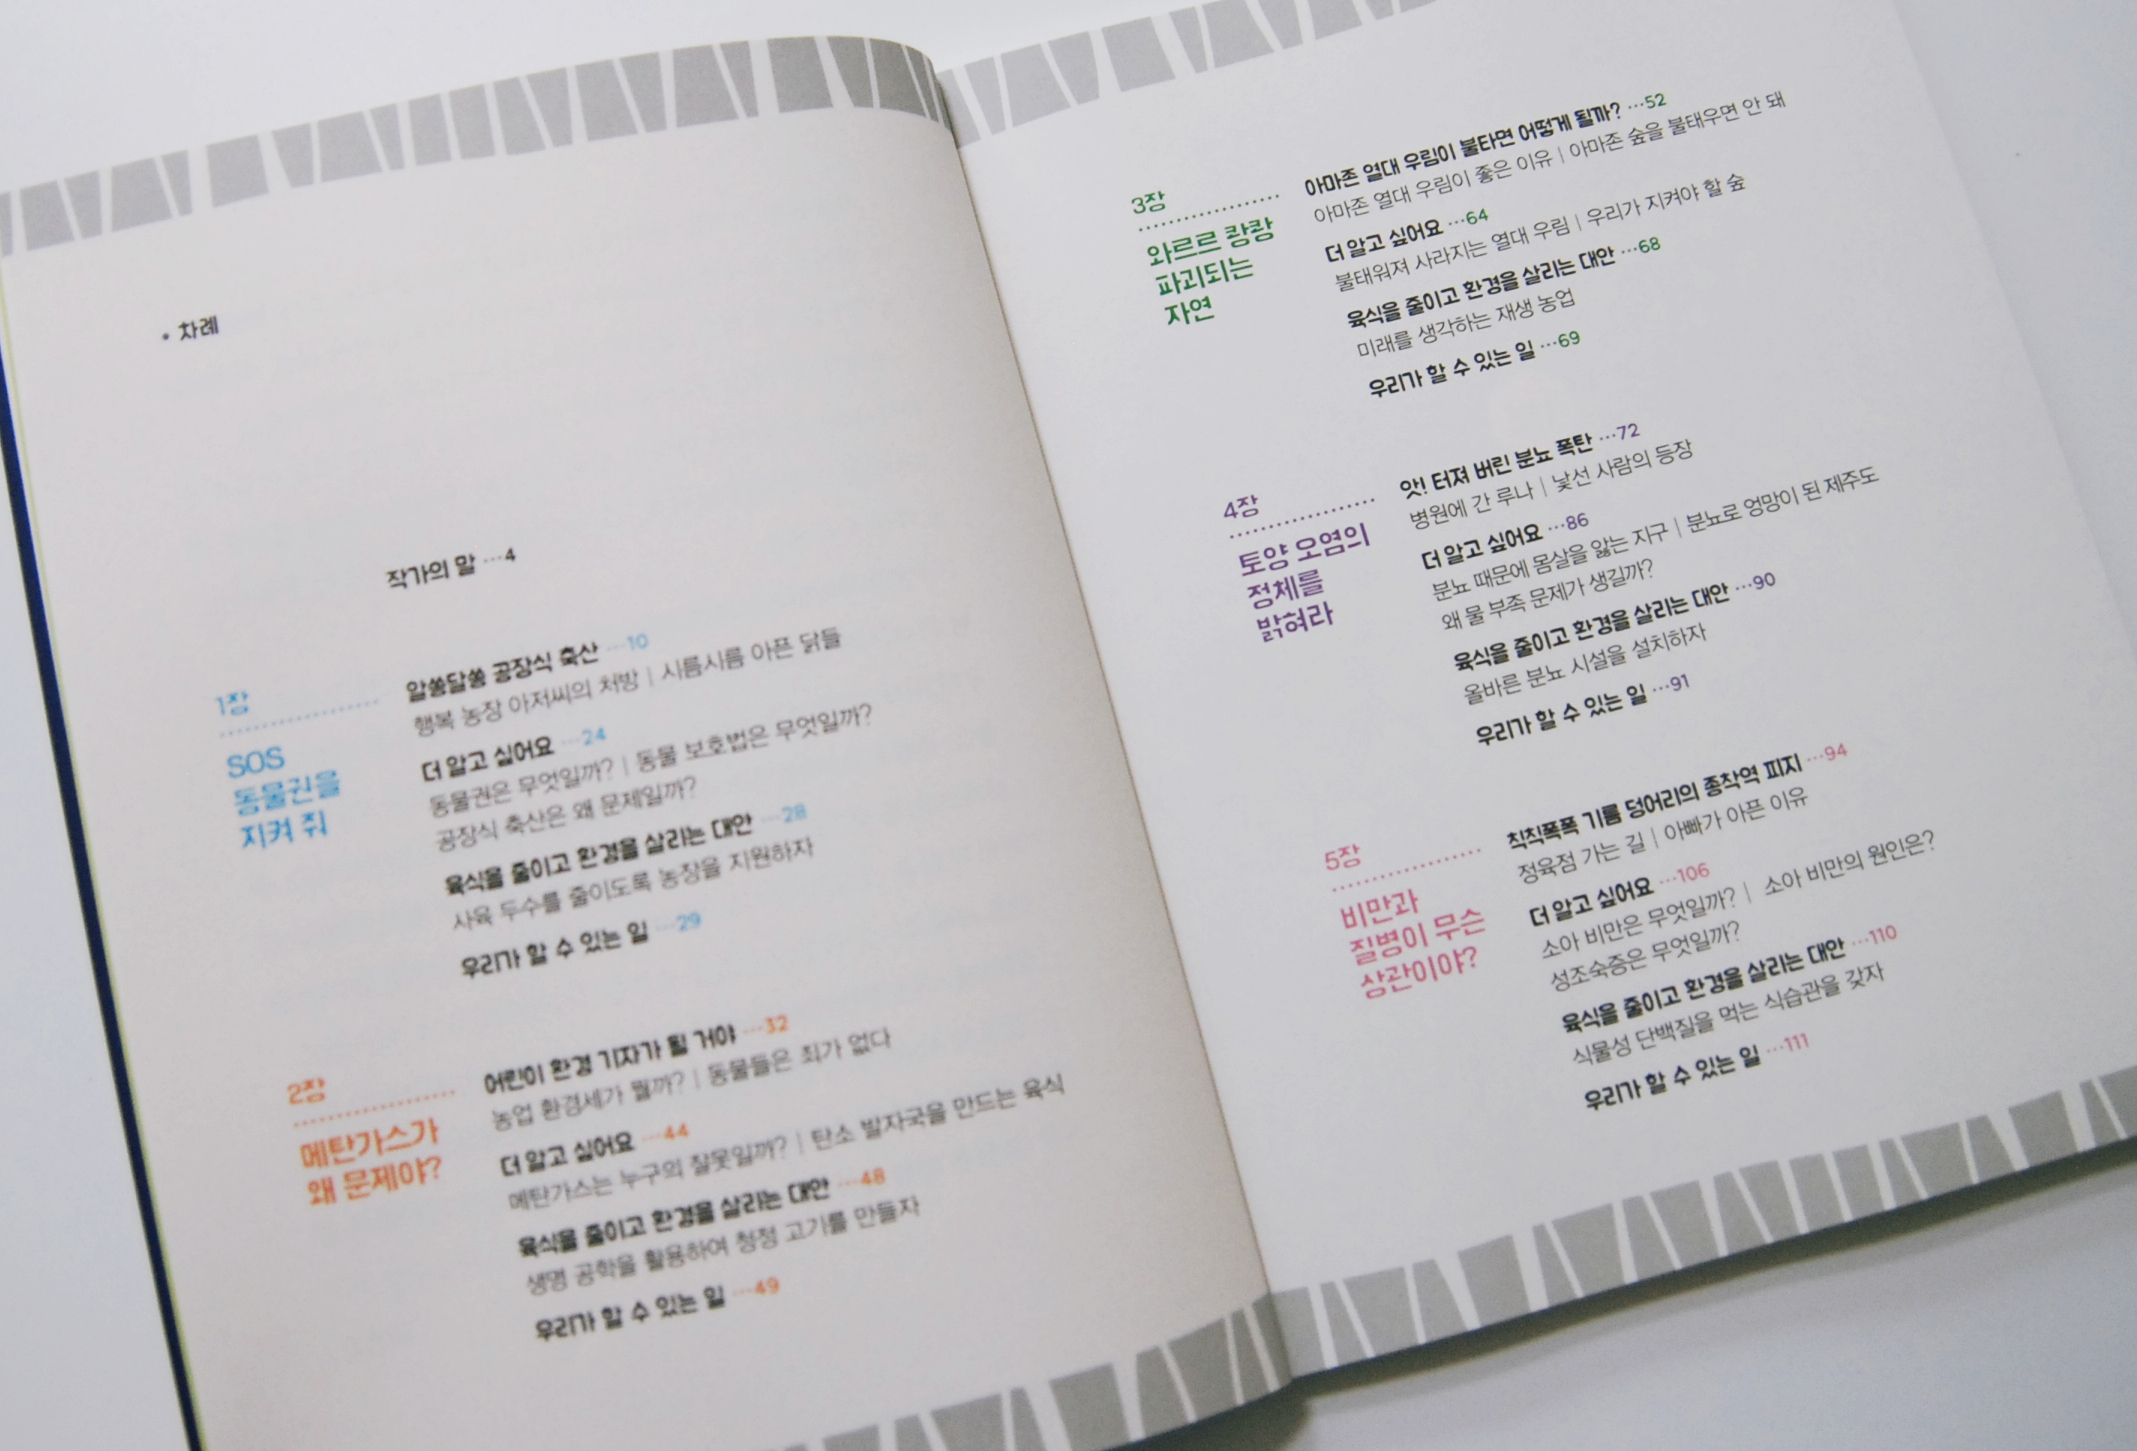 • 차례
작가의 말 ···4
1장
SOS
동물권을
지켜 줘
알쏭달쏭 공장식 축산 ···10
행복 농장 아저씨의 처방 | 시름시름 아픈 닭들
더 알고 싶어요 ···24
동물권은 무엇일까? | 동물 보호법은 무엇일까?
공장식 축산은 왜 문제일까?
육식을 줄이고 환경을 살리는 대안 ···28
사육 두수를 줄이도록 농장을 지원하자
우리가 할 수 있는 일 ···29
2장
메탄가스가
왜 문제야?
어린이 환경 기자가 될 거야 ···32
농업 환경세가 뭘까? | 동물들은 죄가 없다
더 알고 싶어요 ···44
메탄가스는 누구의 잘못일까? | 탄소 발자국을 만드는 육식
육식을 줄이고 환경을 살리는 대안 ···48
생명 공학을 활용하여 청정 고기를 만들자
우리가 할 수 있는 일 ···49
3장
와르르 쾅쾅
파괴되는
자연
아마존 열대 우림이 불타면 어떻게 될까? ···52
아마존 열대 우림이 좋은 이유 | 아마존 숲을 불태우면 안 돼
더 알고 싶어요 ···64
불태워져 사라지는 열대 우림 | 우리가 지켜야 할 숲
육식을 줄이고 환경을 살리는 대안 ···68
미래를 생각하는 재생 농업
우리가 할 수 있는 일 ···69
4장
토양 오염의
정체를
밝혀라
앗! 터져 버린 분뇨 폭탄 ···72
병원에 간 루나 | 낯선 사람의 등장
더 알고 싶어요 ···86
분뇨 때문에 몸살을 앓는 지구 | 분뇨로 엉망이 된 제주도
왜 물 부족 문제가 생길까?
육식을 줄이고 환경을 살리는 대안 ···90
올바른 분뇨 시설을 설치하자
우리가 할 수 있는 일 ···91
5장
비만과
질병이 무슨
상관이야?
칙칙폭폭 기름 덩어리의 종착역 피지 ···94
정육점 가는 길 | 아빠가 아픈 이유
더 알고 싶어요 ···106
소아 비만은 무엇일까? | 소아 비만의 원인은?
성조숙증은 무엇일까?
육식을 줄이고 환경을 살리는 대안 ···110
식물성 단백질을 먹는 식습관을 갖자
우리가 할 수 있는 일 ···111